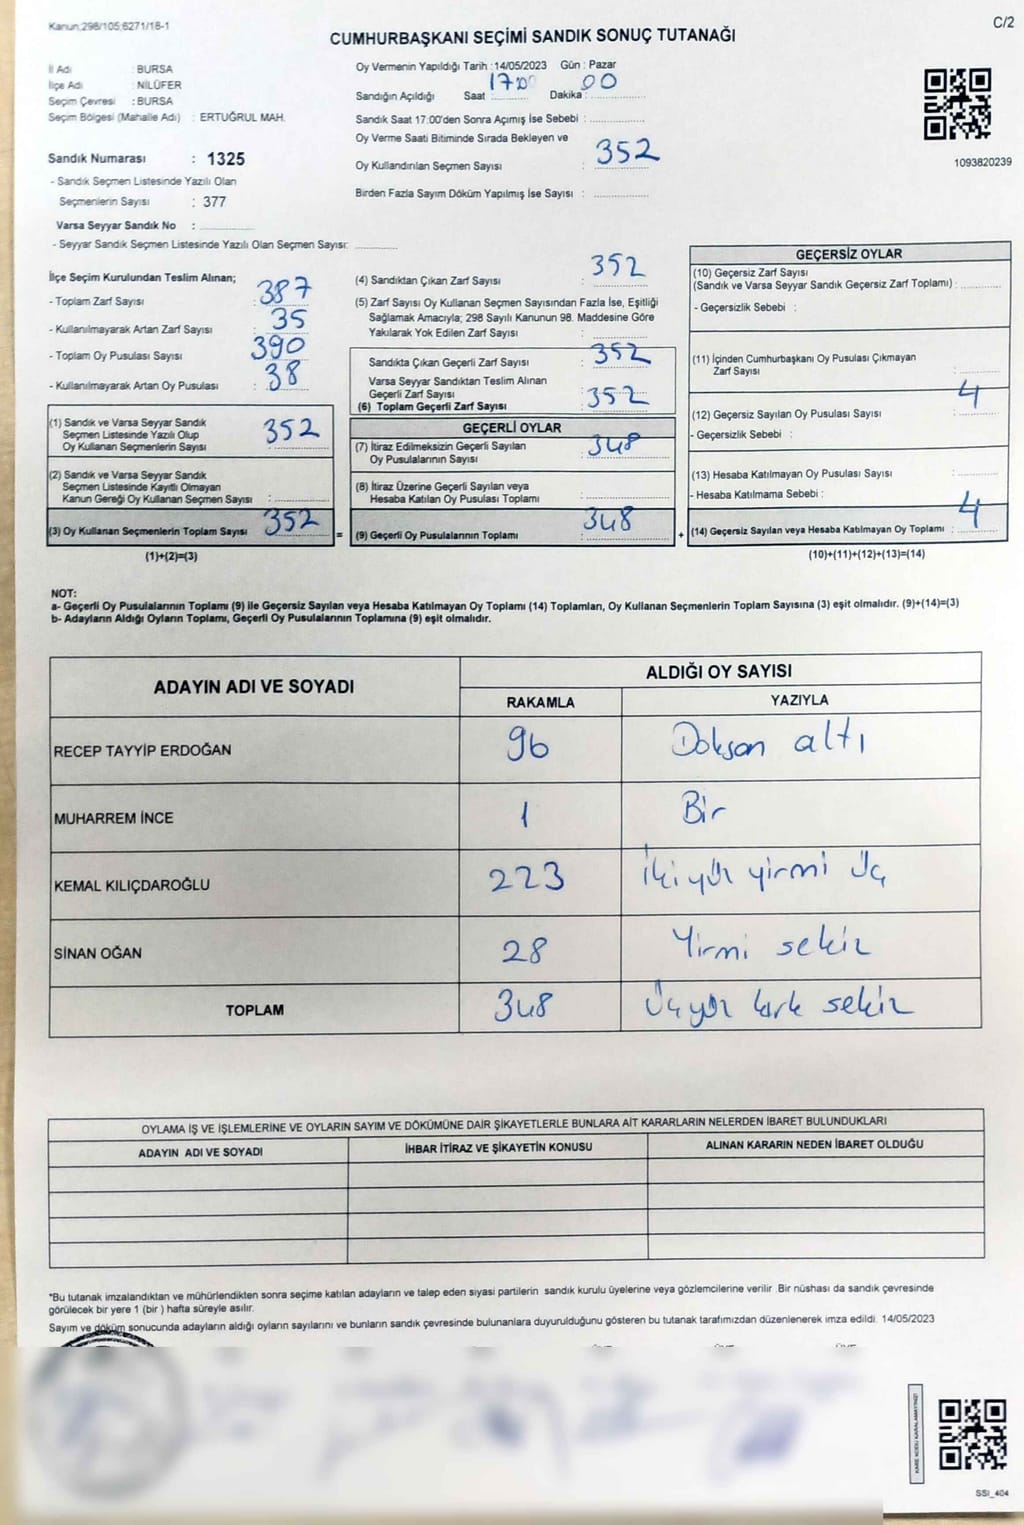 Kanun:298/105;6271/18-1
C/2
CUMHURBAŞKANI SEÇİMİ SANDIK SONUÇ TUTANAĞI
İl Adı : BURSA
İlçe Adı : NİLÜFER
Seçim Çevresi : BURSA
Seçim Bölgesi (Mahalle Adı) : ERTUĞRUL MAH.
Sandık Numarası : 1325
- Sandık Seçmen Listesinde Yazılı Olan
Seçmenlerin Sayısı : 377
Varsa Seyyar Sandık No :
- Seyyar Sandık Seçmen Listesinde Yazılı Olan Seçmen Sayısı:
Oy Vermenin Yapıldığı Tarih :14/05/2023 Gün : Pazar
Sandığın Açıldığı Saat : 17:00 Dakika : 00
Sandık Saat 17:00'den Sonra Açımış İse Sebebi :
Oy Verme Saati Bitiminde Sırada Bekleyen ve
Oy Kullandırılan Seçmen Sayısı : 352
Birden Fazla Sayım Döküm Yapılmış İse Sayısı :
1093820239
İlçe Seçim Kurulundan Teslim Alınan;
- Toplam Zarf Sayısı : 387
- Kullanılmayarak Artan Zarf Sayısı : 35
- Toplam Oy Pusulası Sayısı : 390
- Kullanılmayarak Artan Oy Pusulası : 38
(1) Sandık ve Varsa Seyyar Sandık
Seçmen Listesinde Yazılı Olup
Oy Kullanan Seçmenlerin Sayısı : 352
(2) Sandık ve Varsa Seyyar Sandık
Seçmen Listesinde Kayıtlı Olmayan
Kanun Gereği Oy Kullanan Seçmen Sayısı :
(3) Oy Kullanan Seçmenlerin Toplam Sayısı : 352
(1)+(2)=(3)
(4) Sandıktan Çıkan Zarf Sayısı : 352
(5) Zarf Sayısı Oy Kullanan Seçmen Sayısından Fazla İse, Eşitliği
Sağlamak Amacıyla; 298 Sayılı Kanunun 98. Maddesine Göre
Yakılarak Yok Edilen Zarf Sayısı :
Sandıkta Çıkan Geçerli Zarf Sayısı : 352
Varsa Seyyar Sandıktan Teslim Alınan
Geçerli Zarf Sayısı :
(6) Toplam Geçerli Zarf Sayısı : 352
GEÇERLİ OYLAR
(7) İtiraz Edilmeksizin Geçerli Sayılan
Oy Pusulalarının Sayısı : 348
(8) İtiraz Üzerine Geçerli Sayılan veya
Hesaba Katılan Oy Pusulası Toplamı :
= (9) Geçerli Oy Pusulalarının Toplamı : 348
GEÇERSİZ OYLAR
(10) Geçersiz Zarf Sayısı
(Sandık ve Varsa Seyyar Sandık Geçersiz Zarf Toplamı) :
- Geçersizlik Sebebi :
(11) İçinden Cumhurbaşkanı Oy Pusulası Çıkmayan
Zarf Sayısı :
(12) Geçersiz Sayılan Oy Pusulası Sayısı : 4
- Geçersizlik Sebebi :
(13) Hesaba Katılmayan Oy Pusulası Sayısı :
- Hesaba Katılmama Sebebi :
+ (14) Geçersiz Sayılan veya Hesaba Katılmayan Oy Toplamı : 4
(10)+(11)+(12)+(13)=(14)
NOT:
a- Geçerli Oy Pusulalarının Toplamı (9) ile Geçersiz Sayılan veya Hesaba Katılmayan Oy Toplamı (14) Toplamları, Oy Kullanan Seçmenlerin Toplam Sayısına (3) eşit olmalıdır. (9)+(14)=(3)
b- Adayların Aldığı Oyların Toplamı, Geçerli Oy Pusulalarının Toplamına (9) eşit olmalıdır.
ADAYIN ADI VE SOYADI ALDIĞI OY SAYISI
RAKAMLA YAZIYLA
RECEP TAYYİP ERDOĞAN 96 Doksan altı
MUHARREM İNCE 1 Bir
KEMAL KILIÇDAROĞLU 223 İkiyüz yirmi üç
SİNAN OĞAN 28 Yirmi sekiz
TOPLAM 348 Üçyüz kırk sekiz
OYLAMA İŞ VE İŞLEMLERİNE VE OYLARIN SAYIM VE DÖKÜMÜNE DAİR ŞİKAYETLERLE BUNLARA AİT KARARLARIN NELERDEN İBARET BULUNDUKLARI
ADAYIN ADI VE SOYADI İHBAR İTİRAZ VE ŞİKAYETİN KONUSU ALINAN KARARIN NEDEN İBARET OLDUĞU
*Bu tutanak imzalandıktan ve mühürlendikten sonra seçime katılan adayların ve talep eden siyasi partilerin sandık kurulu üyelerine veya gözlemcilerine verilir .Bir nüshası da sandık çevresinde
görülecek bir yere 1 (bir ) hafta süreyle asılır.
Sayım ve döküm sonucunda adayların aldığı oyların sayılarını ve bunların sandık çevresinde bulunanlara duyurulduğunu gösteren bu tutanak tarafımızdan düzenlenerek imza edildi. 14/05/2023
KARE KODU KARALAMAYINIZ!
SSİ_404